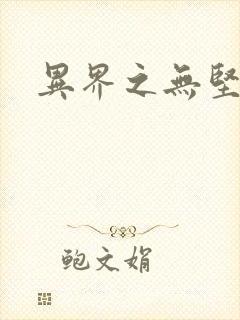 異界之無堅
鲍文娟